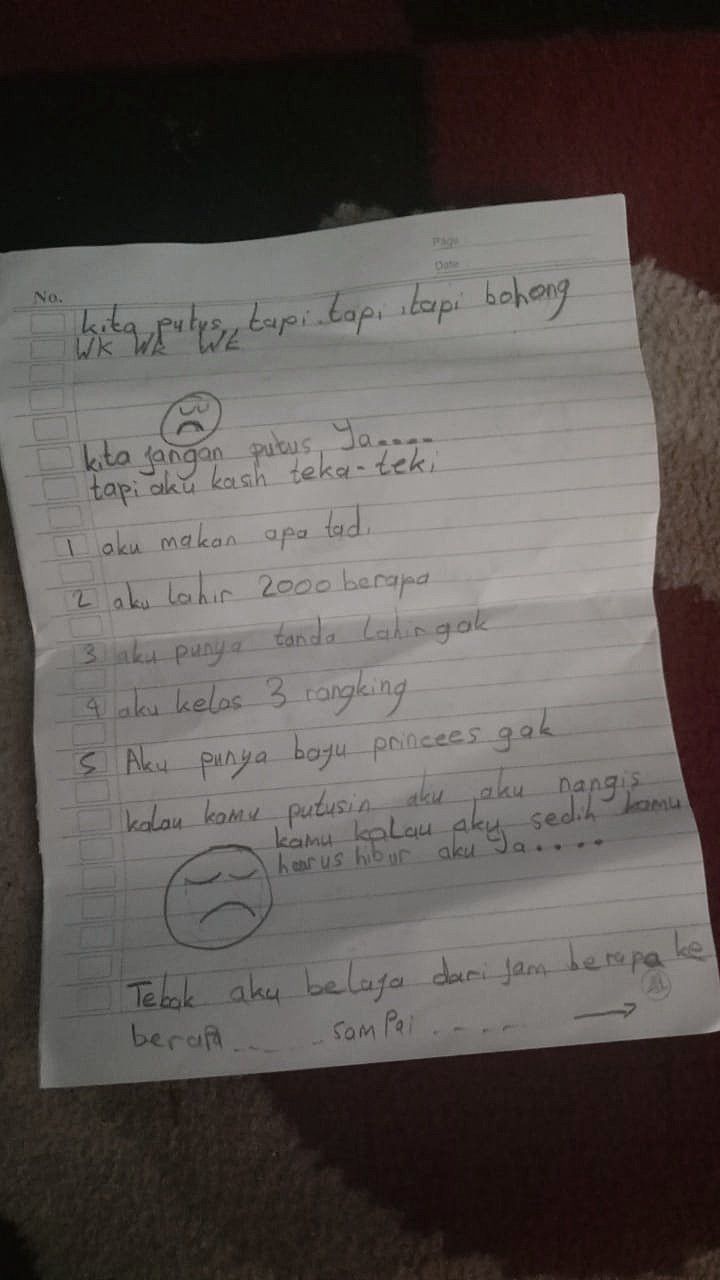 Page
Date
No.
kita putus, tapi.tapi.tapi bohong
WK WK WK
kita jangan putus Ya....
tapi aku kasih teka-teki
1 aku makan apa tadi
2 aku lahir 2000 berapa
3 aku punya tanda lahir gak
4 aku kelas 3 rangking
5 Aku punya baju princees gak
kalau kamu putusin aku aku nangis
kamu kalau aku sedih kamu
harus hibur aku Ya.....
Tebak aku belaja dari jam berapa ke
berapa ..... sampai .....